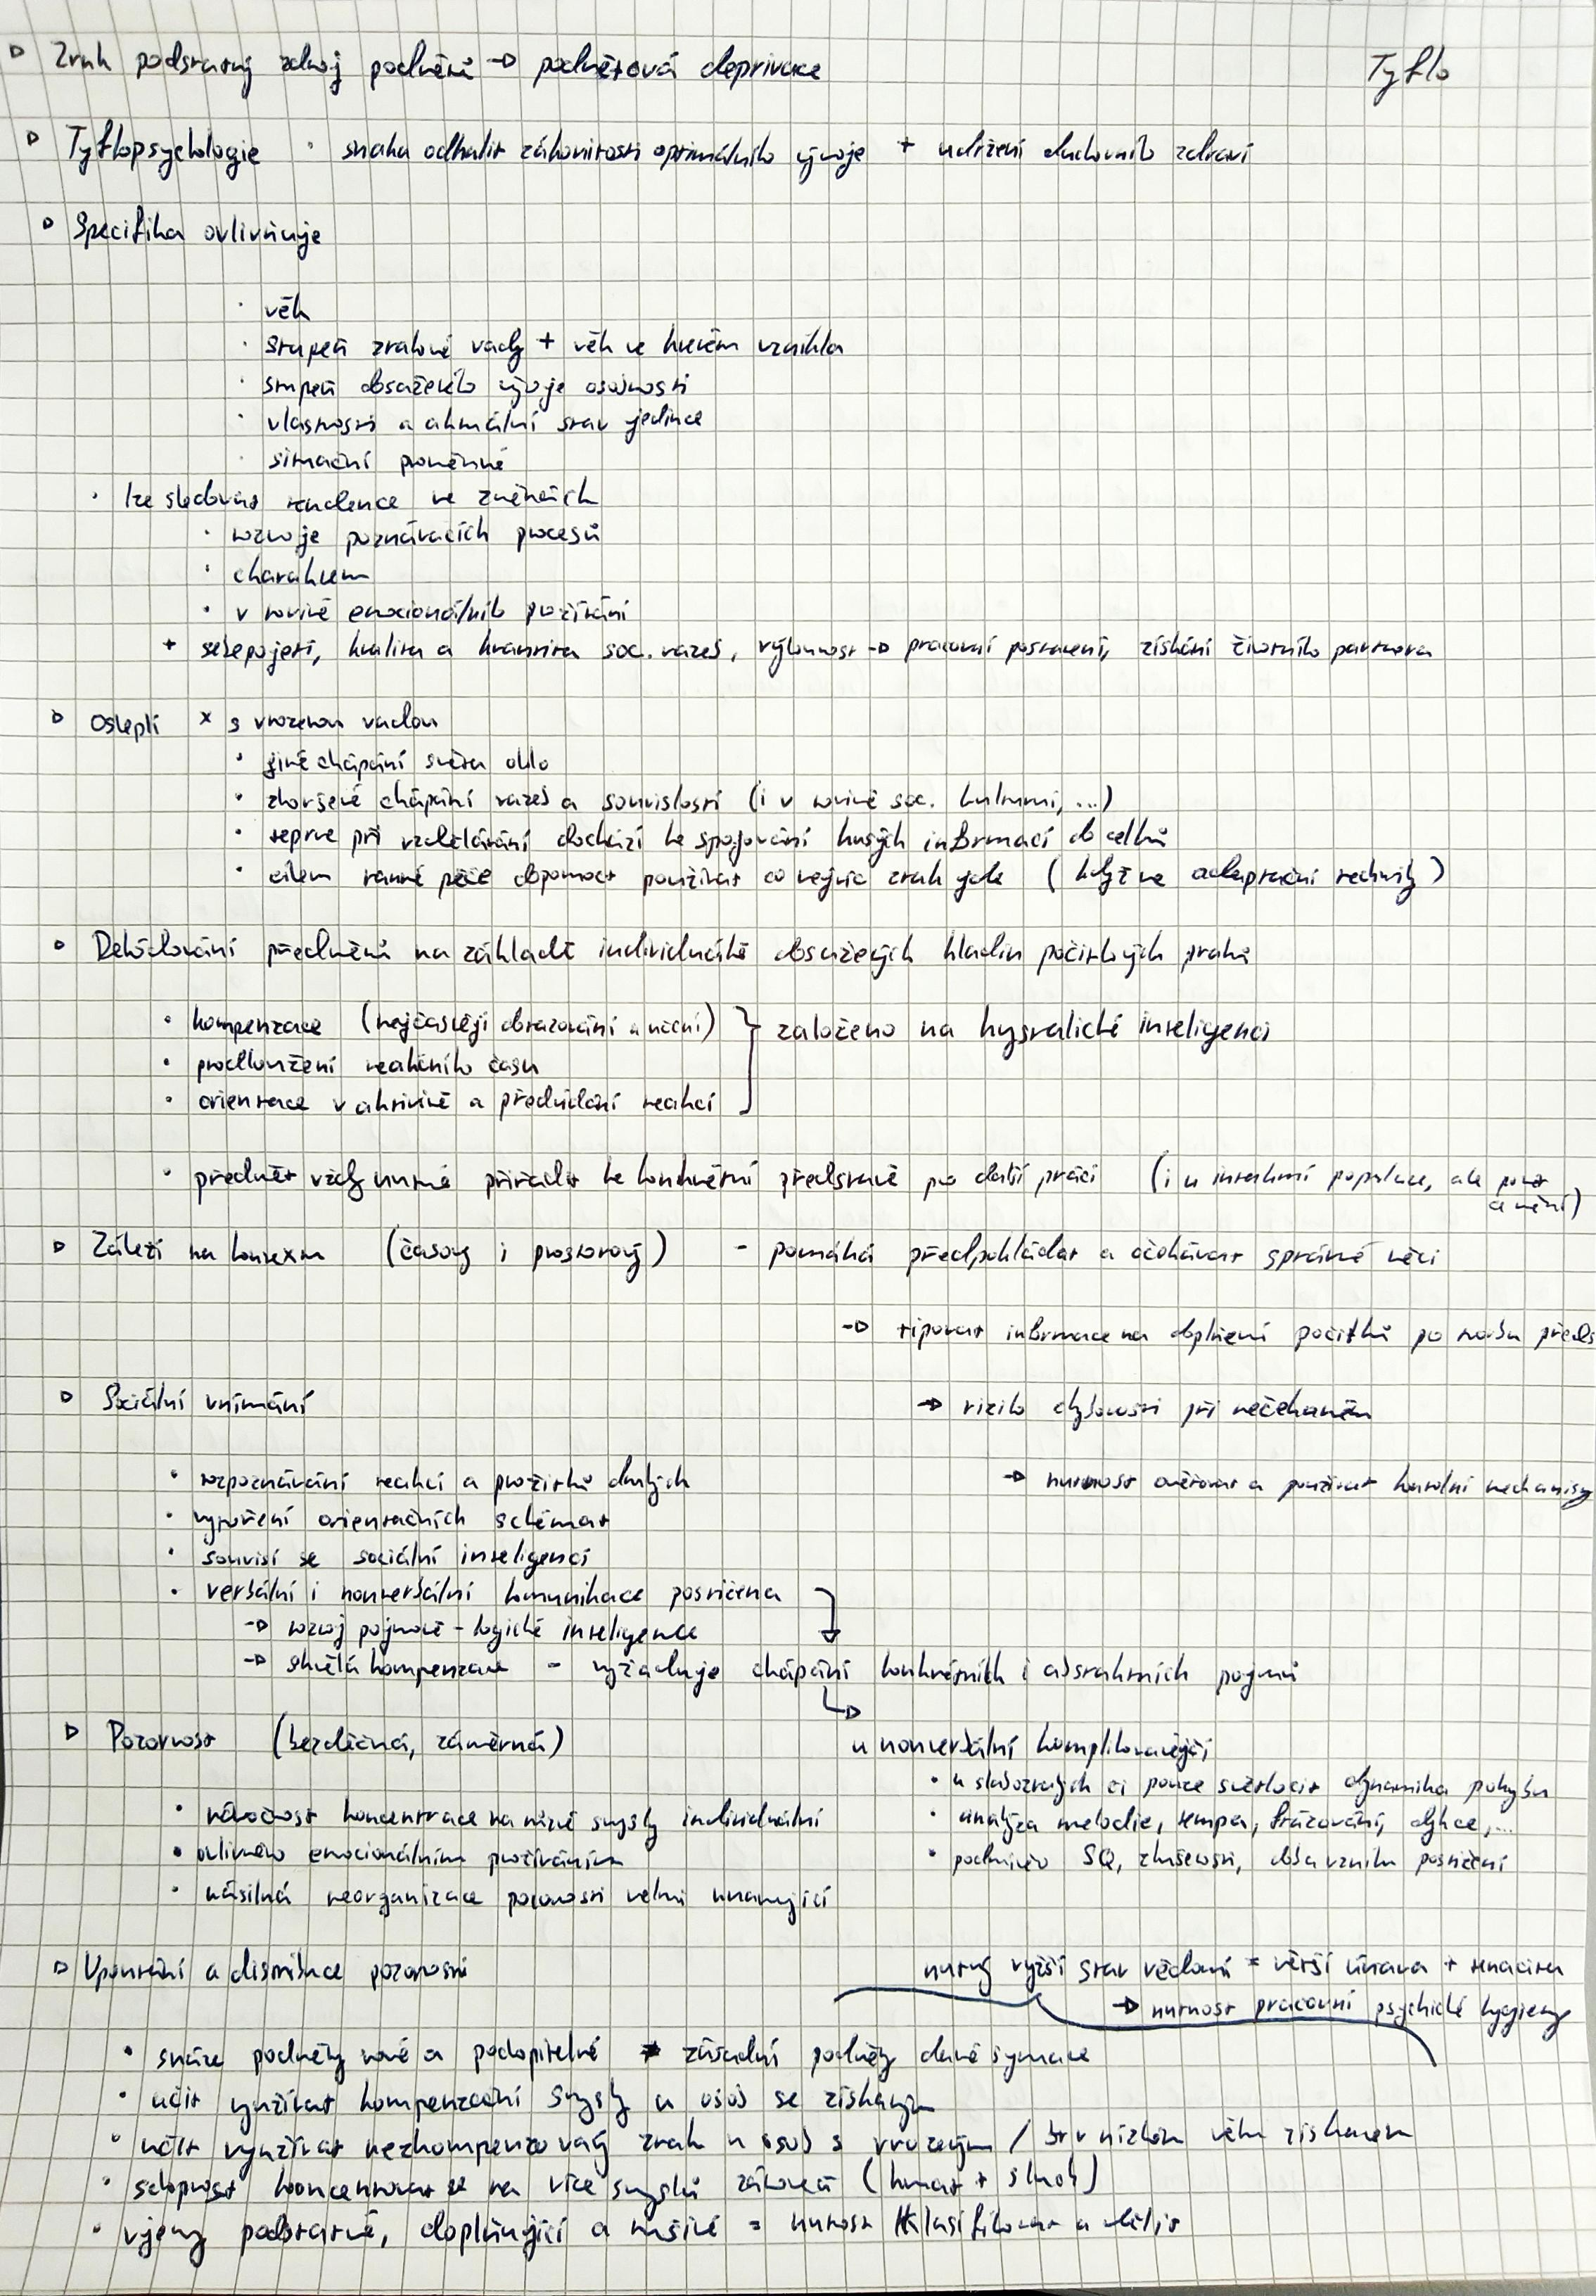 ▷ Zrak podstatný zdroj podnětů → podnětová deprivace
Tyflo
▷ Tyflopsychologie · snaha odhalit zákonitosti optimálního vývoje + udržení duchovního zdraví
▷ Specifika ovlivňuje
· věk
· stupeň zrakové vady + věk ve kterém vznikla
· stupeň dosaženého vývoje osobnosti
· vlastnosti a aktuální stav jedince
· situační proměnné
· lze sledovat tendence ve změnách
· rozvoje poznávacích procesů
· charakteru
· v rovině emocionálního prožívání
+ sebepojetí, kvalita a kvantita soc. vazeb, výkonnost → pracovní postavení, získání životního partnera
▷ Osleplí × s vrozenou vadou
· jiné chápání světa oklo
· zhoršené chápání vazeb a souvislostí (i v rovině soc. kulturní, ...)
· teprve při vzdělávání dochází ke spojování kusých informací do celků
· cílem ranné péče dopomoct používat co nejvíc zrak jde (když ne adaptační techniky)
▷ Dekódování předmětů na základě individuálně dosažených hladin počitkových prahů
· kompenzace (nejčastěji obrazování a učení) } založeno na krystalické inteligenci
· prodloužení reakčního času
· orientace v aktivitě a předvídání reakcí
· předmět vždy nutné přiřadit ke konkrétní představě pro další práci (i u intaktní populace, ale
▷ Záleží na kontextu (časový i prostorový) - pomáhá předpokládat a očekávat správné věci
→ tipovat informace na doplnění počitků po tvorbu předs
▷ Sociální vnímání
→ riziko chybovosti při nečekaném
· rozpoznávání reakcí a prožitků druhých
→ nutnost ověřovat a používat kontrolní mechanismy
· vytvoření orientačních schémat
· souvisí se sociální inteligencí
· verbální i nonverbální komunikace postižena
→ rozvoj pojmově - logické inteligence
→ skvělá kompenzace - vyžaduje chápání konkrétních i abstraktních pojmů
▷ Pozornost (bezděčná, záměrná)
u nonverbální komplikovanější
· u slabozrakých či pouze světlocit dynamika pohybu
· náročnost koncentrace na nižší smysly individuální
· analýza melodie, tempa, frázování, dykce,...
· ovlivněno emocionálním prožíváním
· podmíněno SQ, zkušeností, doba vzniku postižení
· násilná reorganizace pozornosti velmi unavující
▷ Upoutání a distribuce pozornosti
nutný vyšší stav vědomí = větší únava + tenacita
→ nutnost pracovní psychické hygieny
· snáze podněty nové a podopitelné ≠ zásadní podněty dané situace
· učit využívat kompenzační smysly u osob se získaným
· učit využívat nezkompenzovaný zrak u osob s vrozeným / br v nízkém věku získaném
· schopnost koncentrovat se na více smyslů zároveň (hmat + sluch)
· vjemy podstatné, doplňující a rušivé = nutnost klasifikovat a dělit